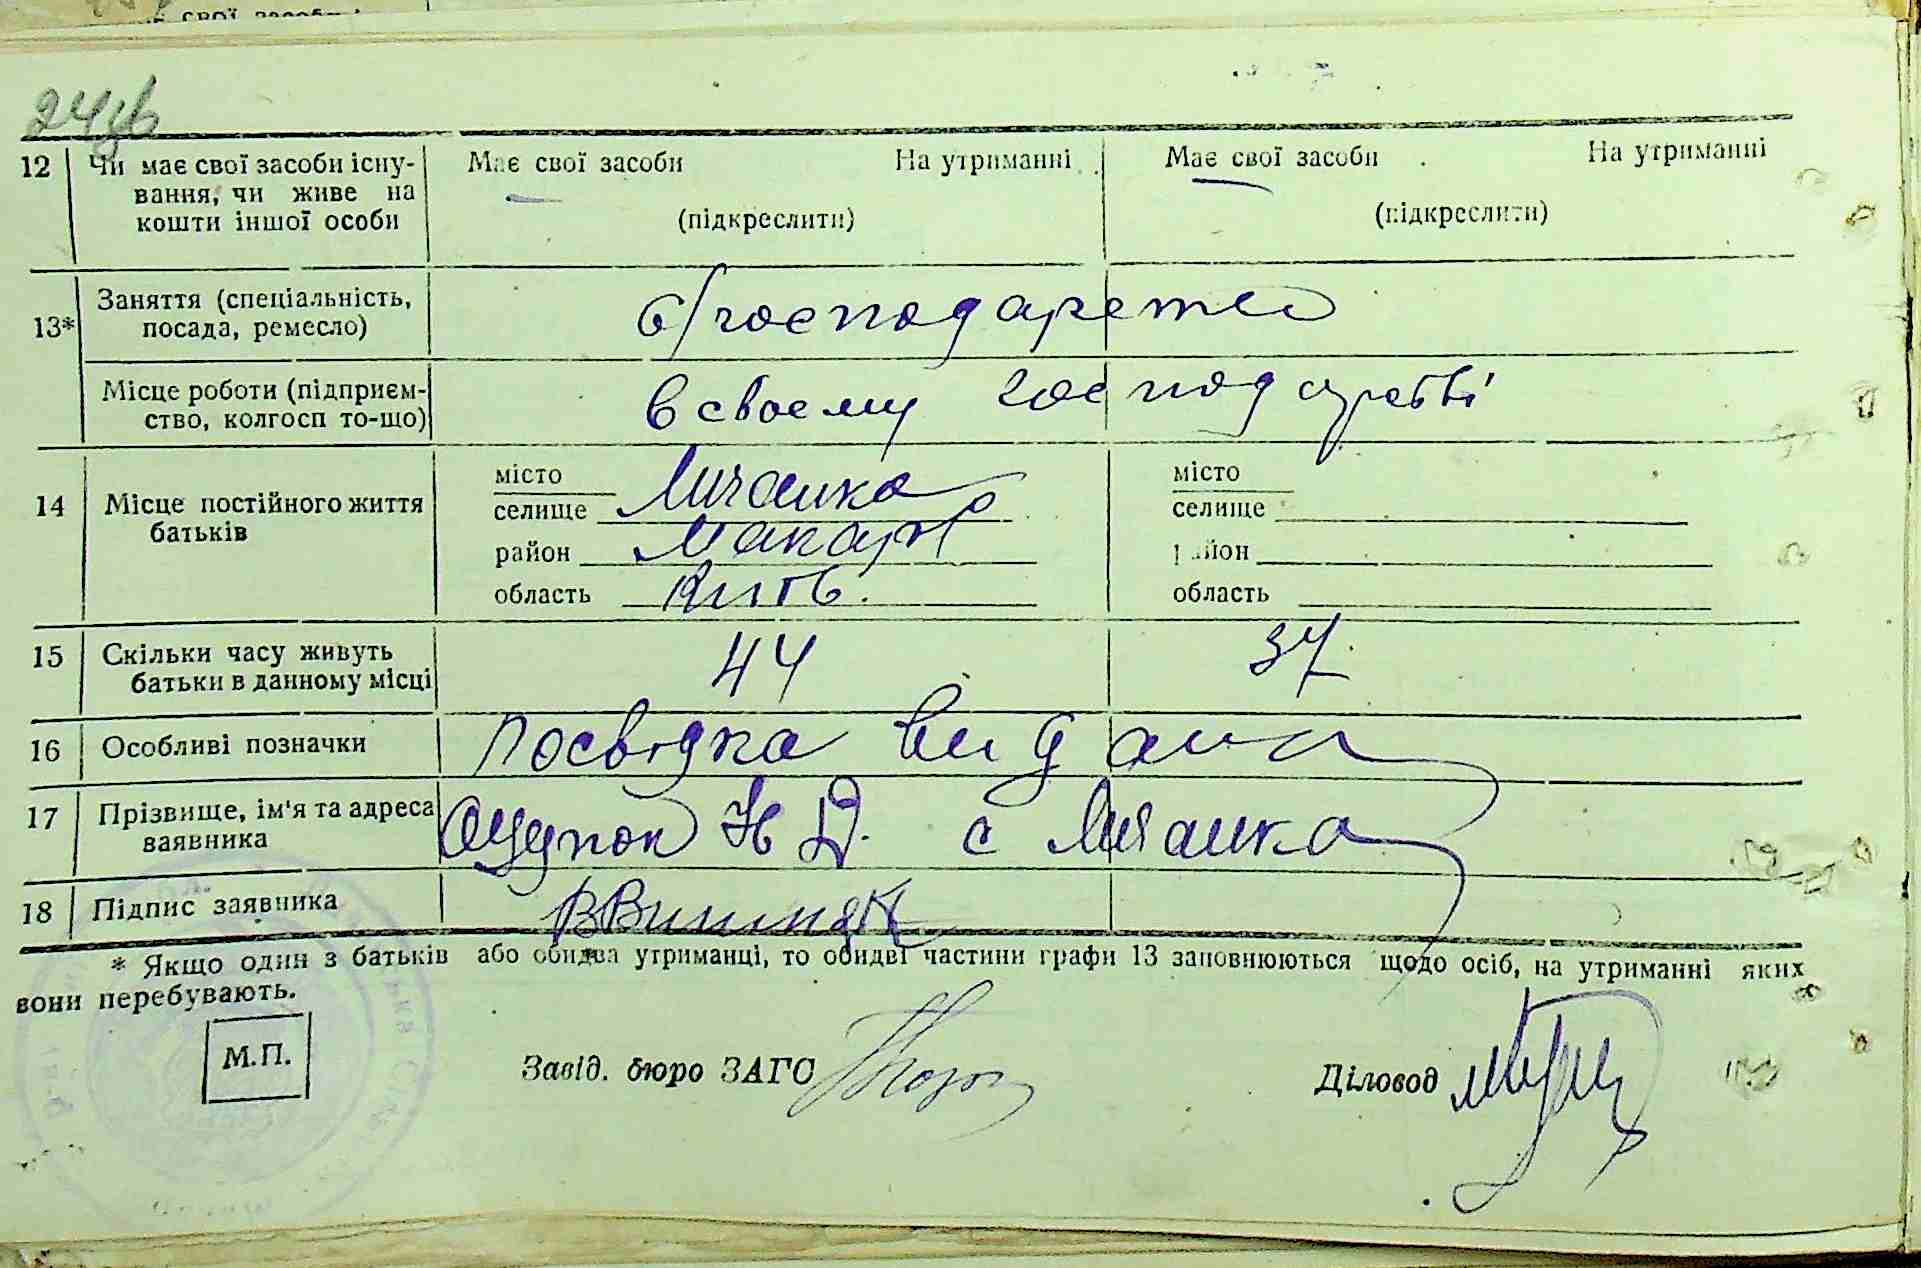 12 Чи має свої засоби існу-
вання, чи живе на
кошти іншої особи
Має свої засоби На утриманні
(підкреслити)
Має свої засоби На утриманні
(підкреслити)
13* Заняття (спеціальність,
посада, ремесло)
с/господарство
Місце роботи (підприєм-
ство, колгосп то-що)
в своєму господарстві
14 Місце постійного життя
батьків
місто
селище Личанка
район Макар
область Київ.
місто
селище
район
область
15 Скільки часу живуть
батьки в данному місці
44 37
16 Особливі позначки
посвідка видана
17 Прізвище, ім'я та адреса
заявника
Н Д. с Личанка
18 Підпис заявника
* Якщо один з батьків або обидва утриманці, то обидві частини графи 13 заповнюються щодо осіб, на утриманні яких
вони перебувають.
М.П.
Завід. бюро ЗАГС
Діловод